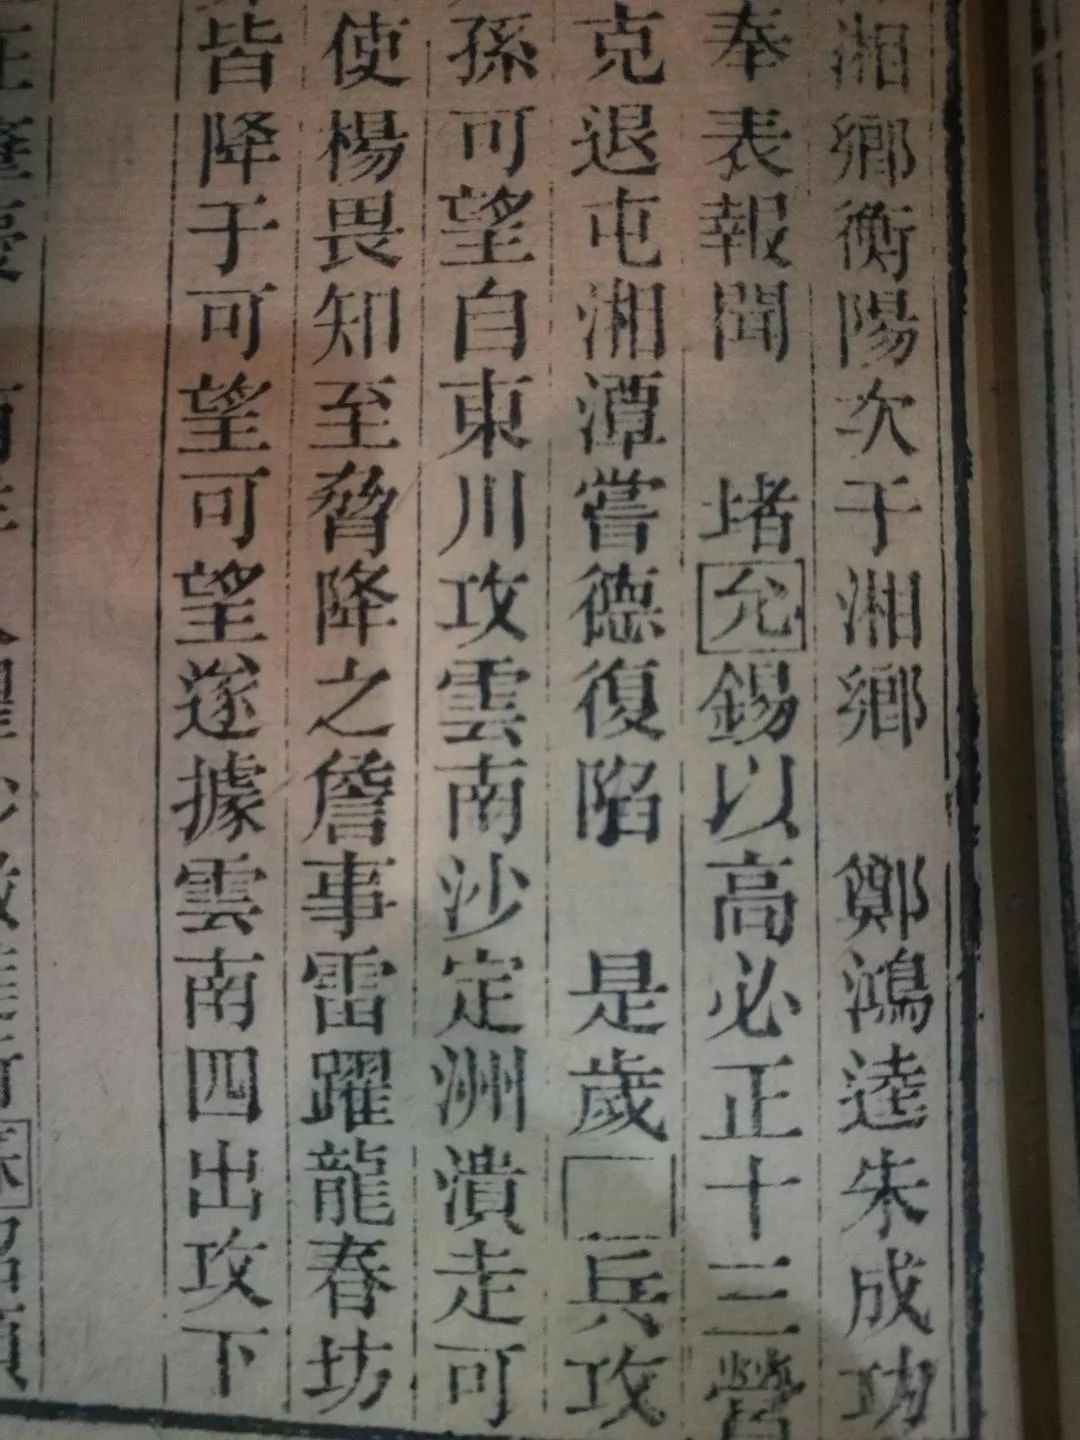 湘鄉衡陽次于湘鄉　鄭鴻逵朱成功
奉表報聞　堵允錫以高必正十三營
克退屯湘潭嘗德復陷　是歲　兵攻
孫可望自東川攻雲南沙定洲潰走可
使楊畏知至脅降之詹事雷躍龍春坊
皆降于可望可望遂據雲南四出攻下